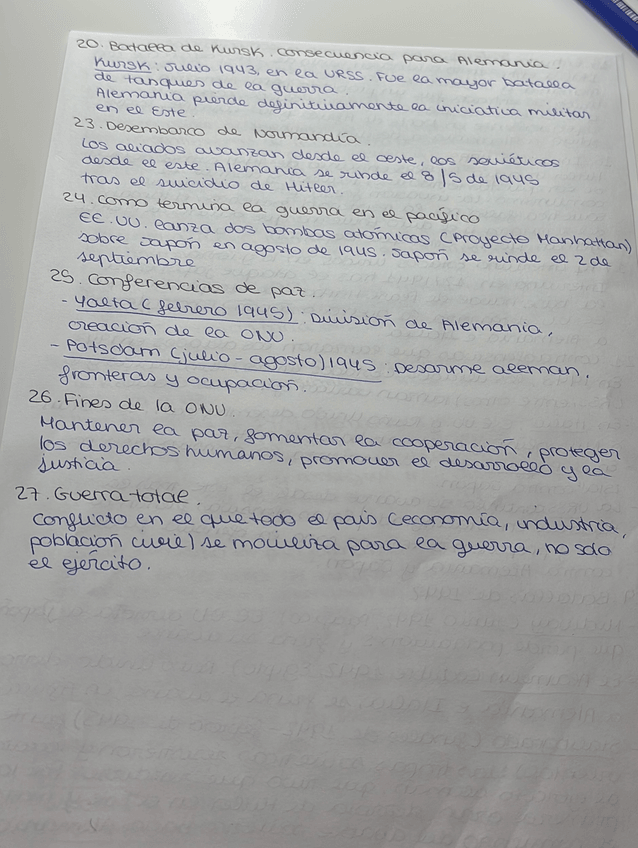 20. Batalla de Kursk. consecuencia para Alemania.
Kursk: Julio 1943, en la URSS. Fue la mayor batalla
de tanques de la guerra.
Alemania pierde definitivamente la iniciativa militar
en el Este.
23. Desembarco de Normandía.
Los aliados avanzan desde el oeste, los soviéticos
desde el este. Alemania se rinde el 8/5 de 1945
tras el suicidio de Hitler.
24. como termina la guerra en el pacífico
EE.UU. lanza dos bombas atómicas (Proyecto Manhattan)
sobre Japón en agosto de 1945. Japón se rinde el 2 de
septiembre
25. Conferencias de paz.
- Yalta (febrero 1945): División de Alemania,
creación de la ONU.
- Potsdam (julio - agosto) 1945: Desarme alemán,
fronteras y ocupación.
26. Fines de la ONU.
Mantener la paz, fomentar la cooperación, proteger
los derechos humanos, promover el desarrollo y la
justicia.
27. Guerra total.
Conflicto en el que todo el país (economía, industria,
población civil) se moviliza para la guerra, no solo
el ejército.